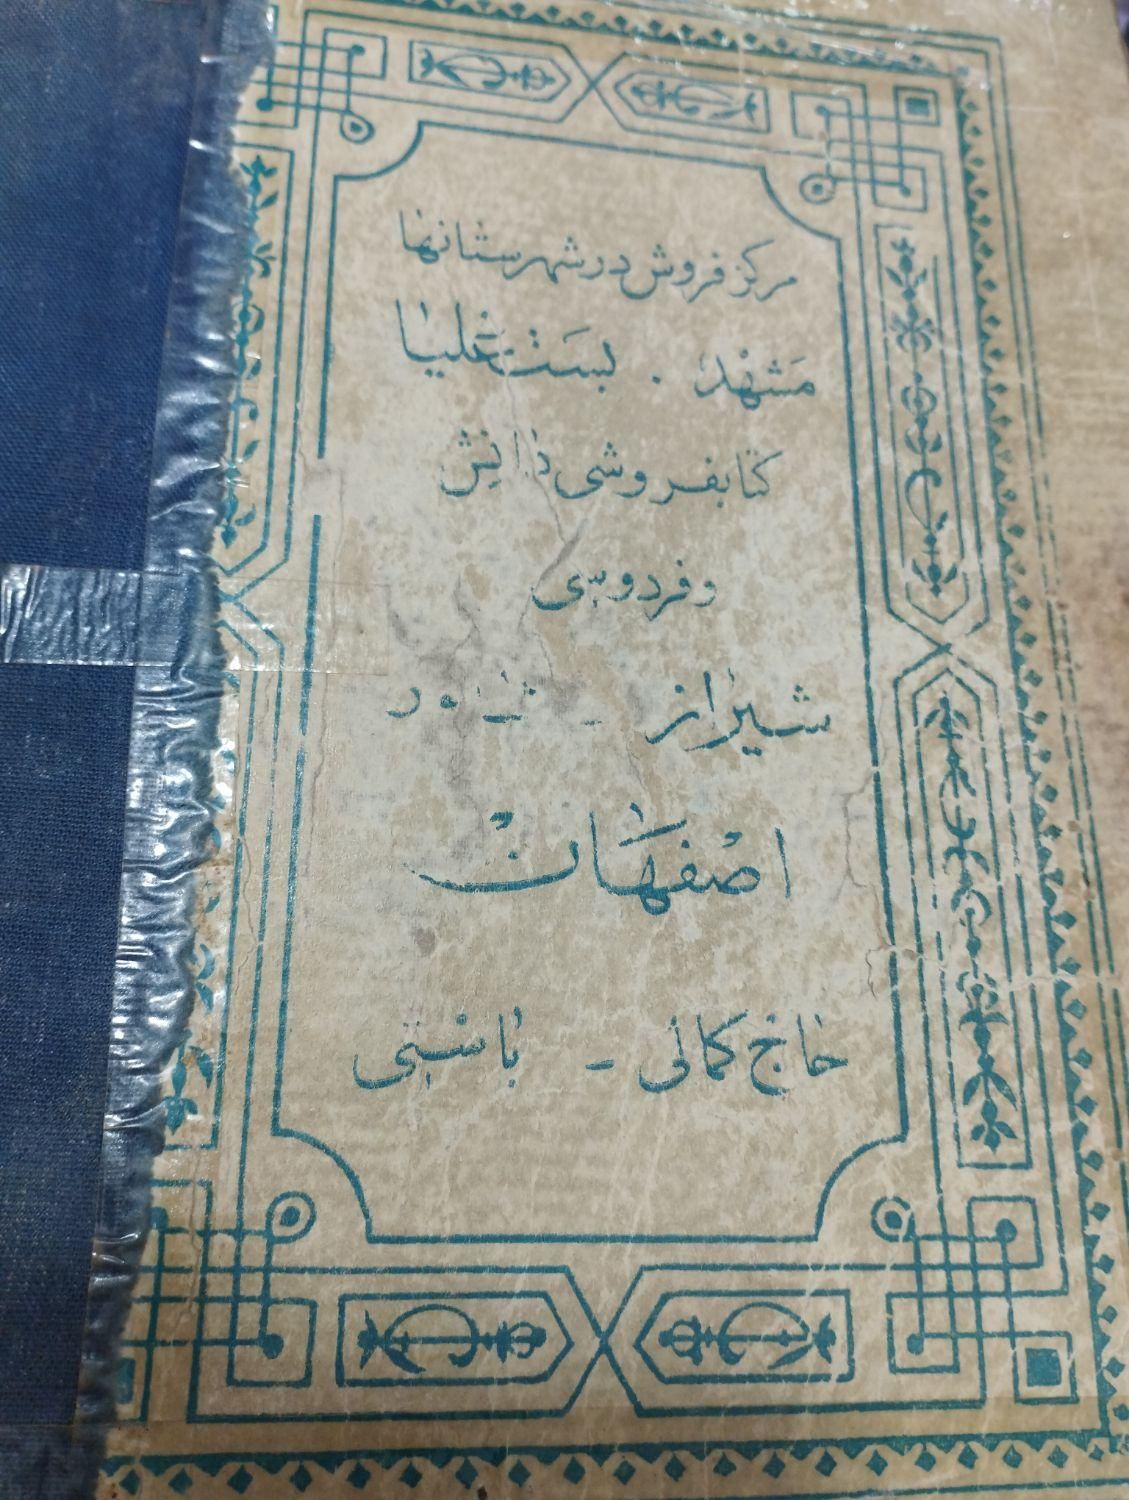 مرکز فروش در شهرستانها
مشهد . بست علیا
کتابفروشی دانش
و فردوسی
شیراز -
اصفهان
حاج کمالی - باستنی